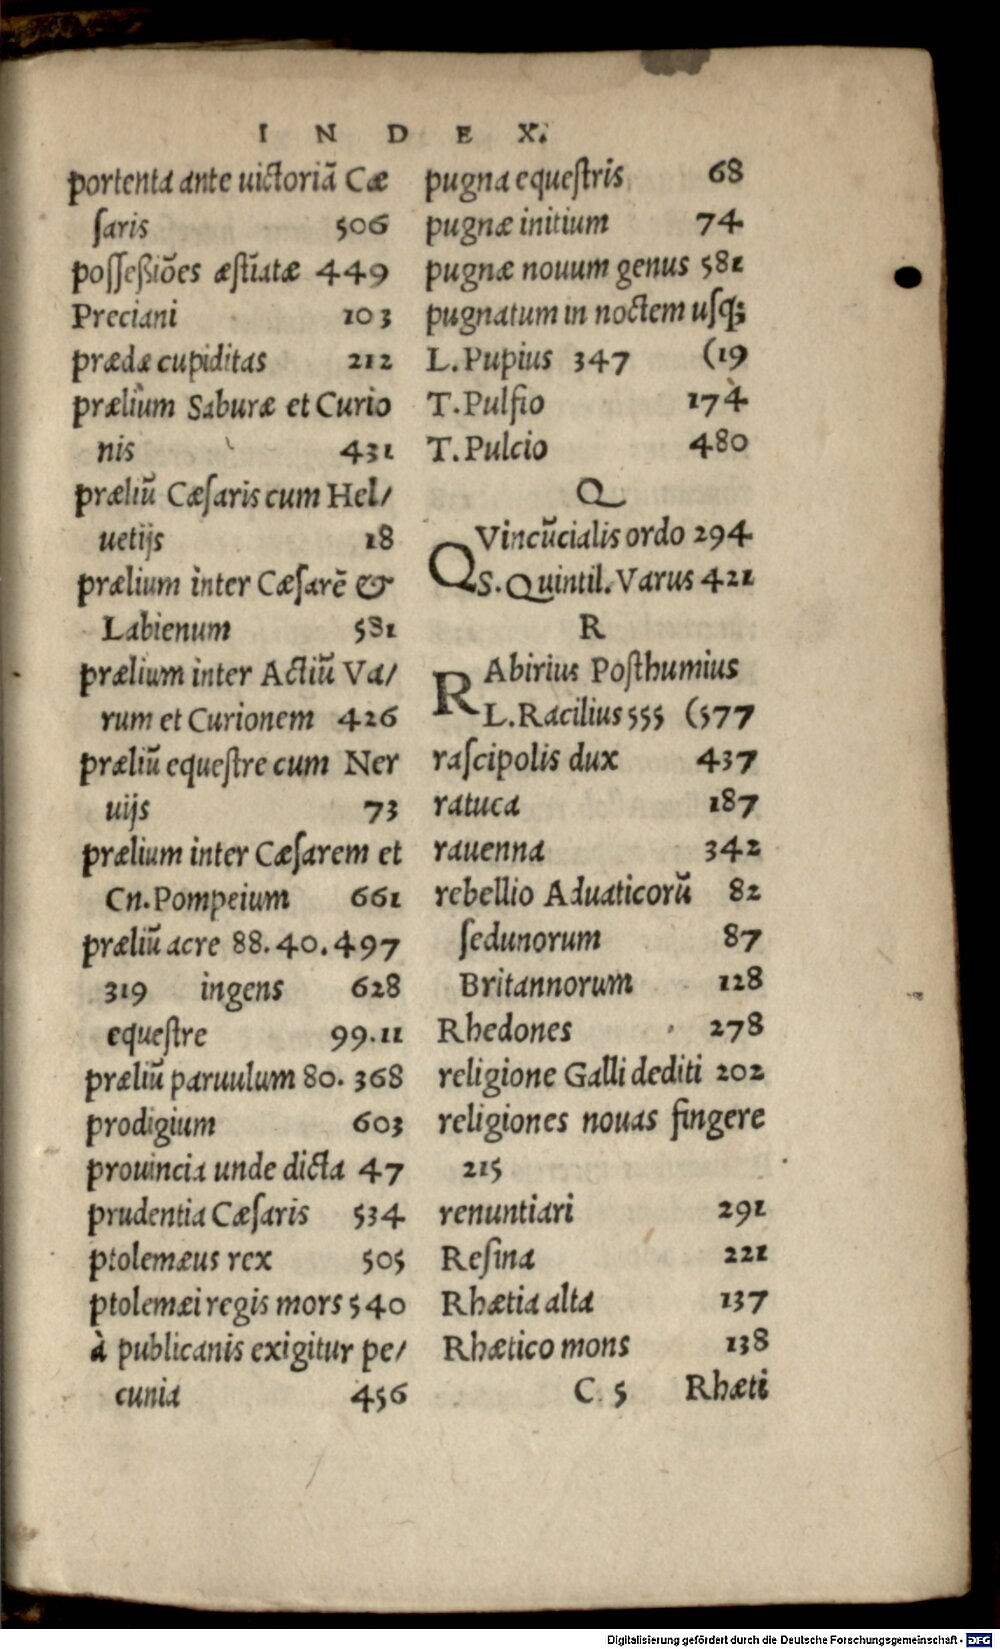 I N D E X.
portenta ante uictoriā Cæ
ſaris 506
poſſeßiões æſtīatæ 449
Preciani 103
prædæ cupiditas 212
prælium Saburæ et Curio
nis 431
præliū Cæſaris cum Hel/
uetijs 18
prælium inter Cæſarē &
Labienum 581
prælium inter Actiū Va/
rum et Curionem 426
præliū equeſtre cum Ner
uijs 73
prælium inter Cæſarem et
Cn. Pompeium 661
præliū acre 88. 40. 497
319 ingens 628
equeſtre 99. 11
præliū paruulum 80. 368
prodigium 603
prouincia unde dicta 47
prudentia Cæſaris 534
ptolemæus rex 505
ptolemæi regis mors 540
à publicanis exigitur pe/
cunia 456
pugna equeſtris 68
pugnæ initium 74
pugnæ nouum genus 581
pugnatum in noctem uſq;
L. Pupius 347 (19
T. Pulfio 174
T. Pulcio 480
Q
QVincūcialis ordo 294
S. Quintil. Varus 421
R
RAbirius Poſthumius
L. Racilius 555 (577
raſcipolis dux 437
ratuca 187
rauenna 342
rebellio Aduaticorū 82
ſedunorum 87
Britannorum 128
Rhedones 278
religione Galli dediti 202
religiones nouas fingere
215
renuntiari 291
Reſina 221
Rhætia alta 137
Rhætico mons 138
C. 5 Rhæti
Digitalisierung gefördert durch die Deutsche Forschungsgemeinschaft - DFG